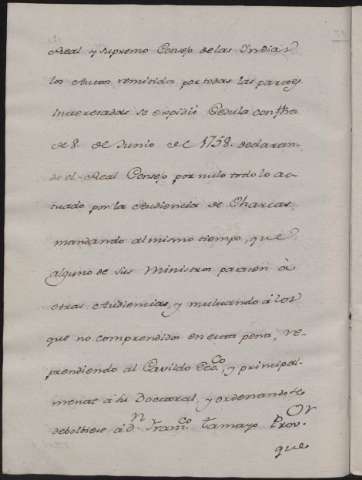 Real y Supremo Consejo de las Indias
los Autos remitidos por todas las partes
Interesadas se expidió Cedula con fha
de 8. de Junio del 1758. declaran-
do el Real Consejo por nulo todo lo ac-
tuado por la Audiencia de Charcas
mandando al mismo tiempo, que
alguno de sus Ministros pasasen à
otras Audiencias, y multando á los
que no comprendidos en esta pena, re-
prendiendo al Cavildo Ecc.co y principal-
mente a su Doctoral, y ordenando se
debolviese á Dn Franco Tamayo Or Prov.
que